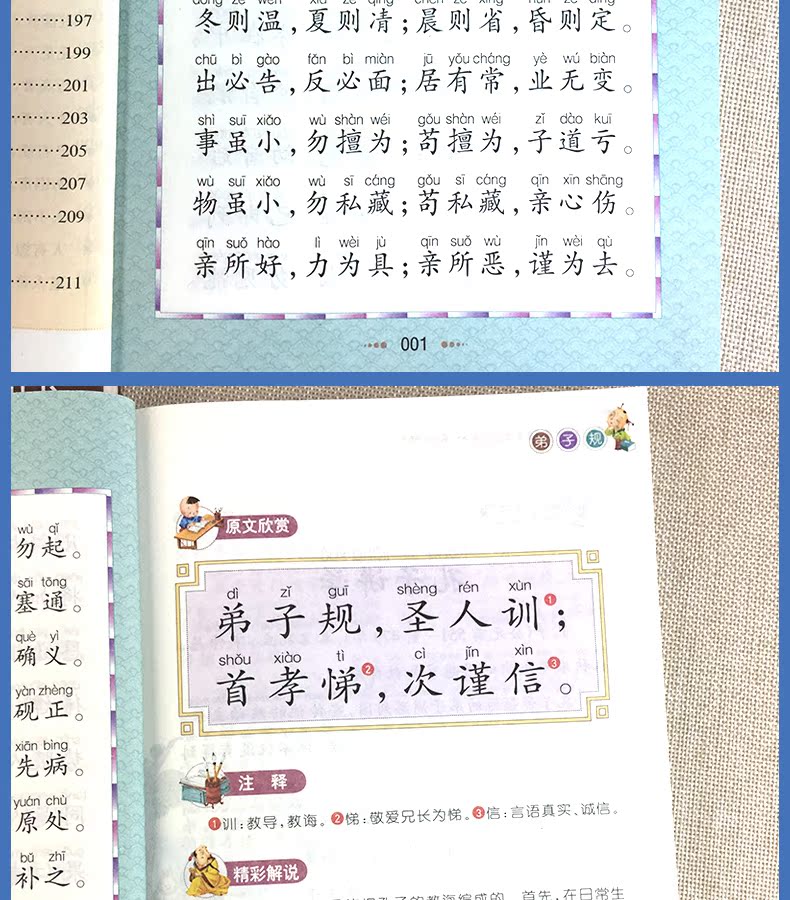 197
199
201
203
205
207
209
211
冬则温，夏则凊；晨则省，昏则定。
chū bì gào fǎn bì miàn jū yǒu cháng yè wú biàn
出必告，反必面；居有常，业无变。
shì suī xiǎo wù shàn wéi gǒu shàn wéi zǐ dào kuī
事虽小，勿擅为；苟擅为，子道亏。
wù suī xiǎo wù sī cáng gǒu sī cáng qīn xīn shāng
物虽小，勿私藏；苟私藏，亲心伤。
qīn suǒ hào lì wèi jù qīn suǒ wù jǐn wèi qù
亲所好，力为具；亲所恶，谨为去。
001
wù qǐ
勿起。
sāi tōng
塞通。
què yì
确义。
yàn zhèng
砚正。
xiān bìng
先病。
yuán chù
原处。
bǔ zhī
补之。
弟子规
原文欣赏
dì zǐ guī shèng rén xùn
弟子规，圣人训❶；
shǒu xiào tì cì jǐn xìn
首孝悌❷，次谨信❸。
注释
❶训：教导，教诲。❷悌：敬爱兄长为悌。❸信：言语真实、诚信。
精彩解说